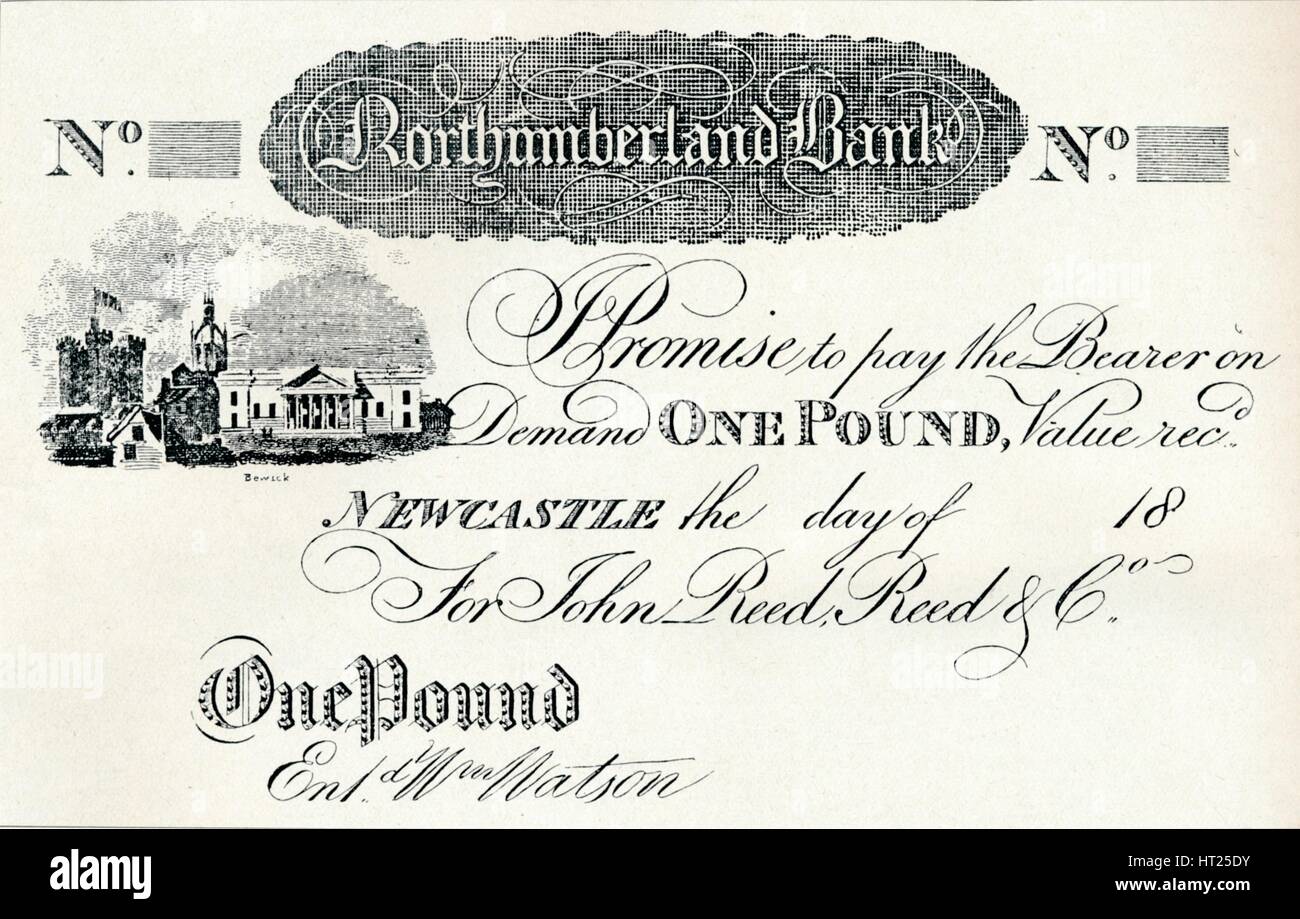 Northumberland Bank
Nº. Nº.
I Promise to pay the Bearer on
Demand ONE POUND, Value recd.
Bewick
NEWCASTLE the day of 18
For John Reed, Reed & Co.
One Pound
Entd. Wm Watson
alamy
alamy
alamy
alamy
alamy
Image ID: HT25DY
www.alamy.com